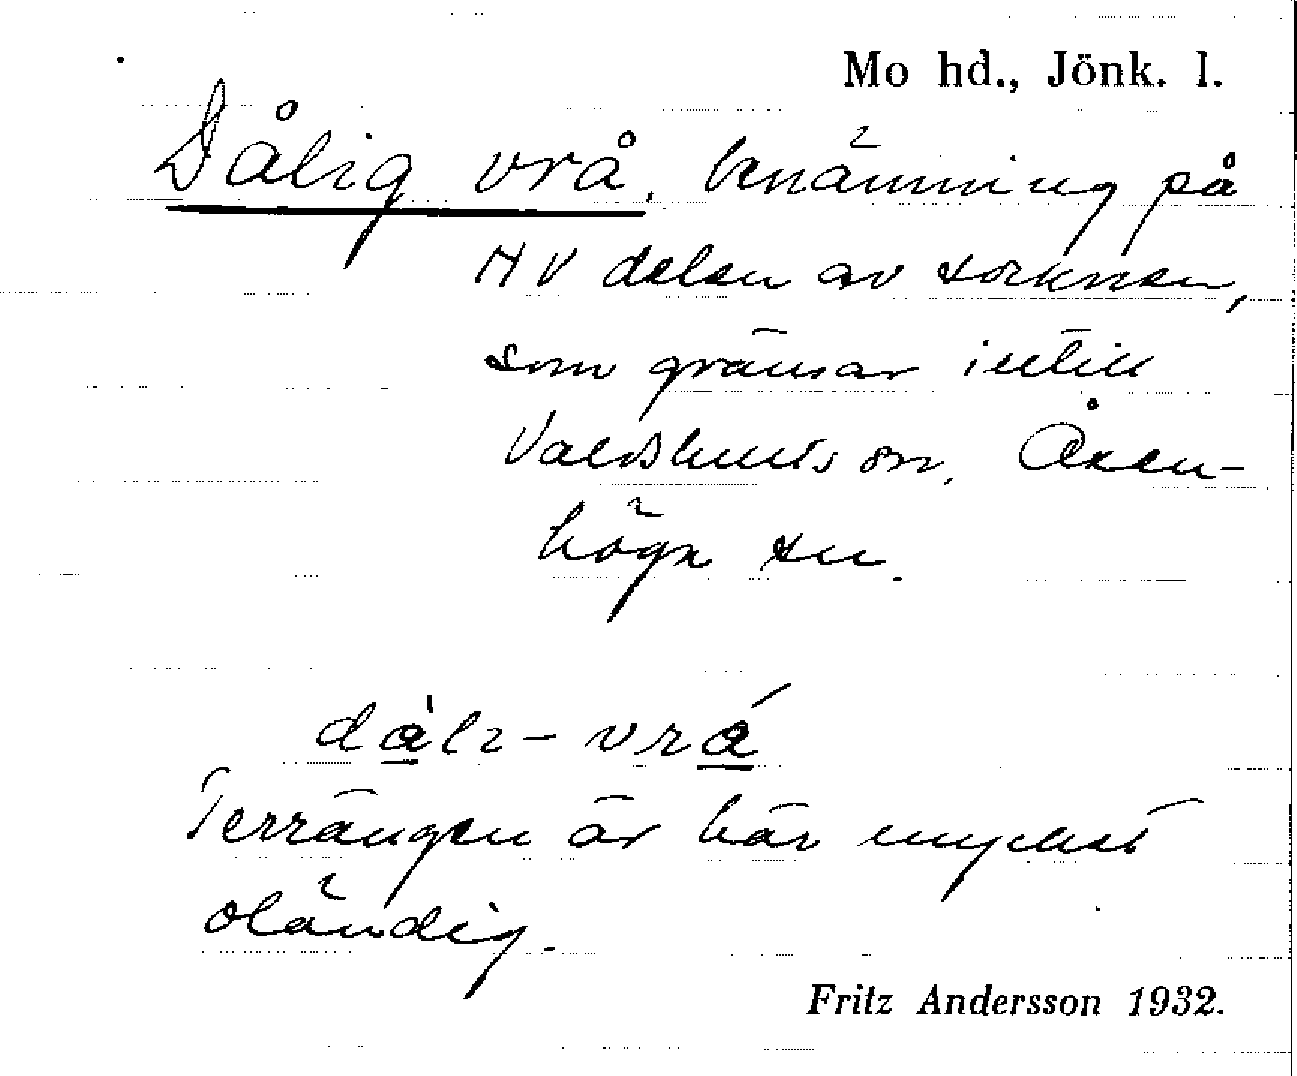 Mo hd., Jönk. l.
Dålig vrå, benämning på
NV delen av socknen,
som gränsar intill
Valdshults sn, Åsen-
höga sn.
dàli-vrá
Terrängen är här mycket
oländig.
Fritz Andersson 1932.